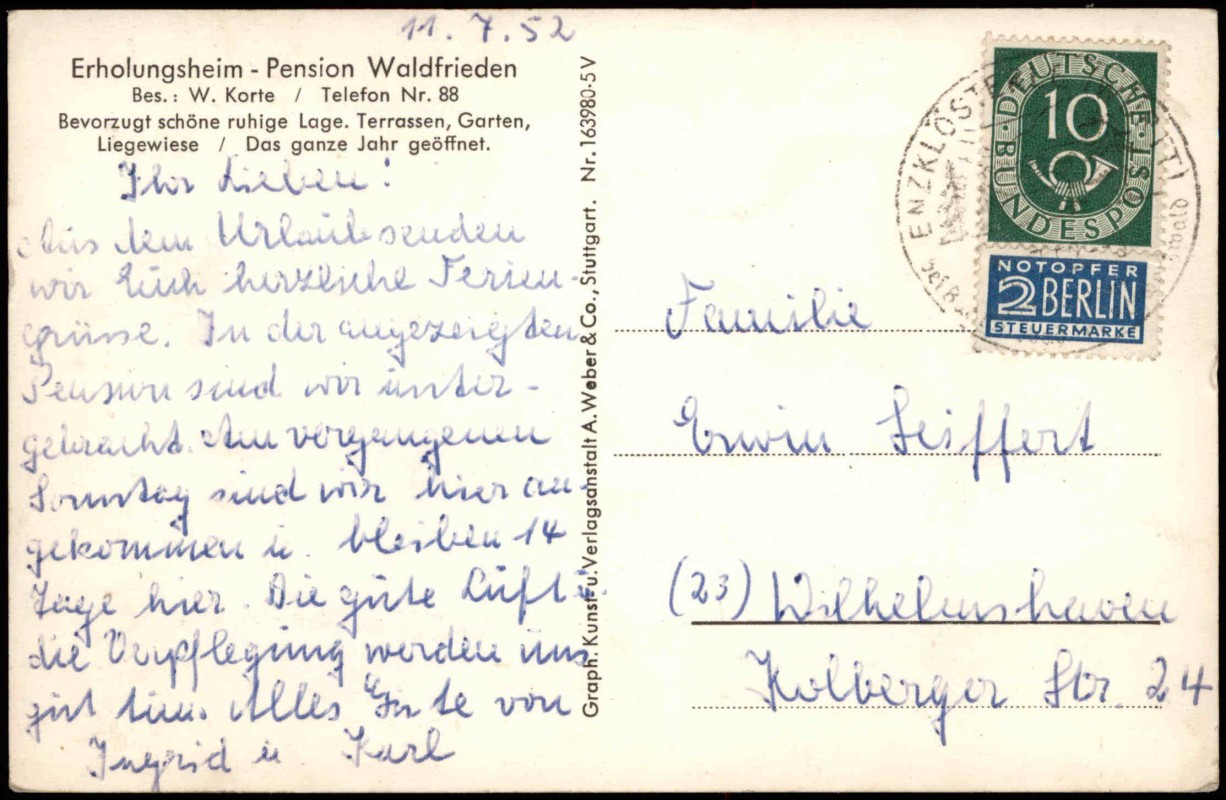 11.7.52
Erholungsheim - Pension Waldfrieden
Bes.: W. Korte / Telefon Nr. 88
Bevorzugt schöne ruhige Lage. Terrassen, Garten,
Liegewiese / Das ganze Jahr geöffnet.
Ihr Lieben!
Aus dem Urlaub senden
wir Euch herzliche Ferien-
grüsse. In der angezeigten
Pension sind wir unter-
gebracht. Am vergangenen
Sonntag sind wir hier an-
gekommen u. bleiben 14
Tage hier. Die gute Luft u.
die Verpflegung werden uns
gut tun. Alles Gute von
Ingrid u Karl
Graph. Kunst- u. Verlagsanstalt A. Weber & Co., Stuttgart. Nr. 163980-5V
DEUTSCHE
BUNDESPOST
10
NOTOPFER
2 BERLIN
STEUERMARKE
ENZKLÖSTERLE
Familie
Erwin Seiffert
(23) Wilhelmshaven
Kolberger Str. 24